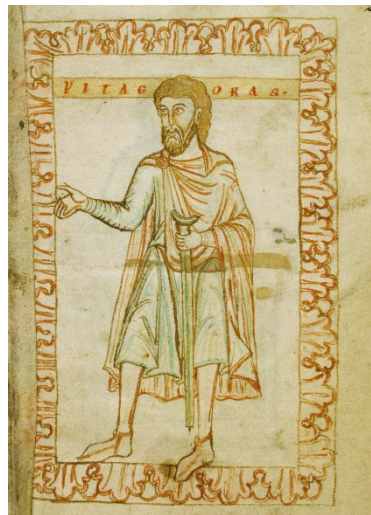 PITAG ORAS·